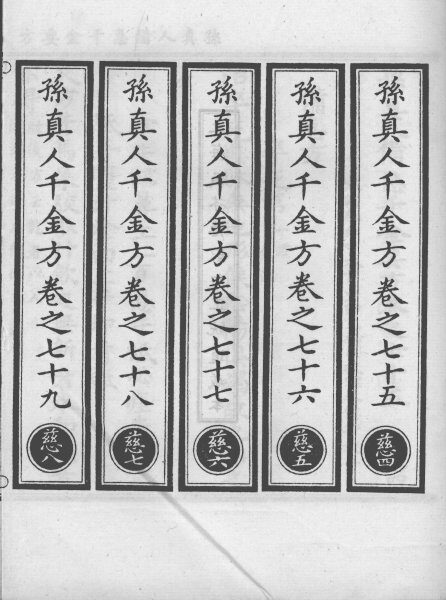 孫真人千金方卷之七十五
慈四
孫真人千金方卷之七十六
慈五
孫真人千金方卷之七十七
慈六
孫真人千金方卷之七十八
慈七
孫真人千金方卷之七十九
慈八